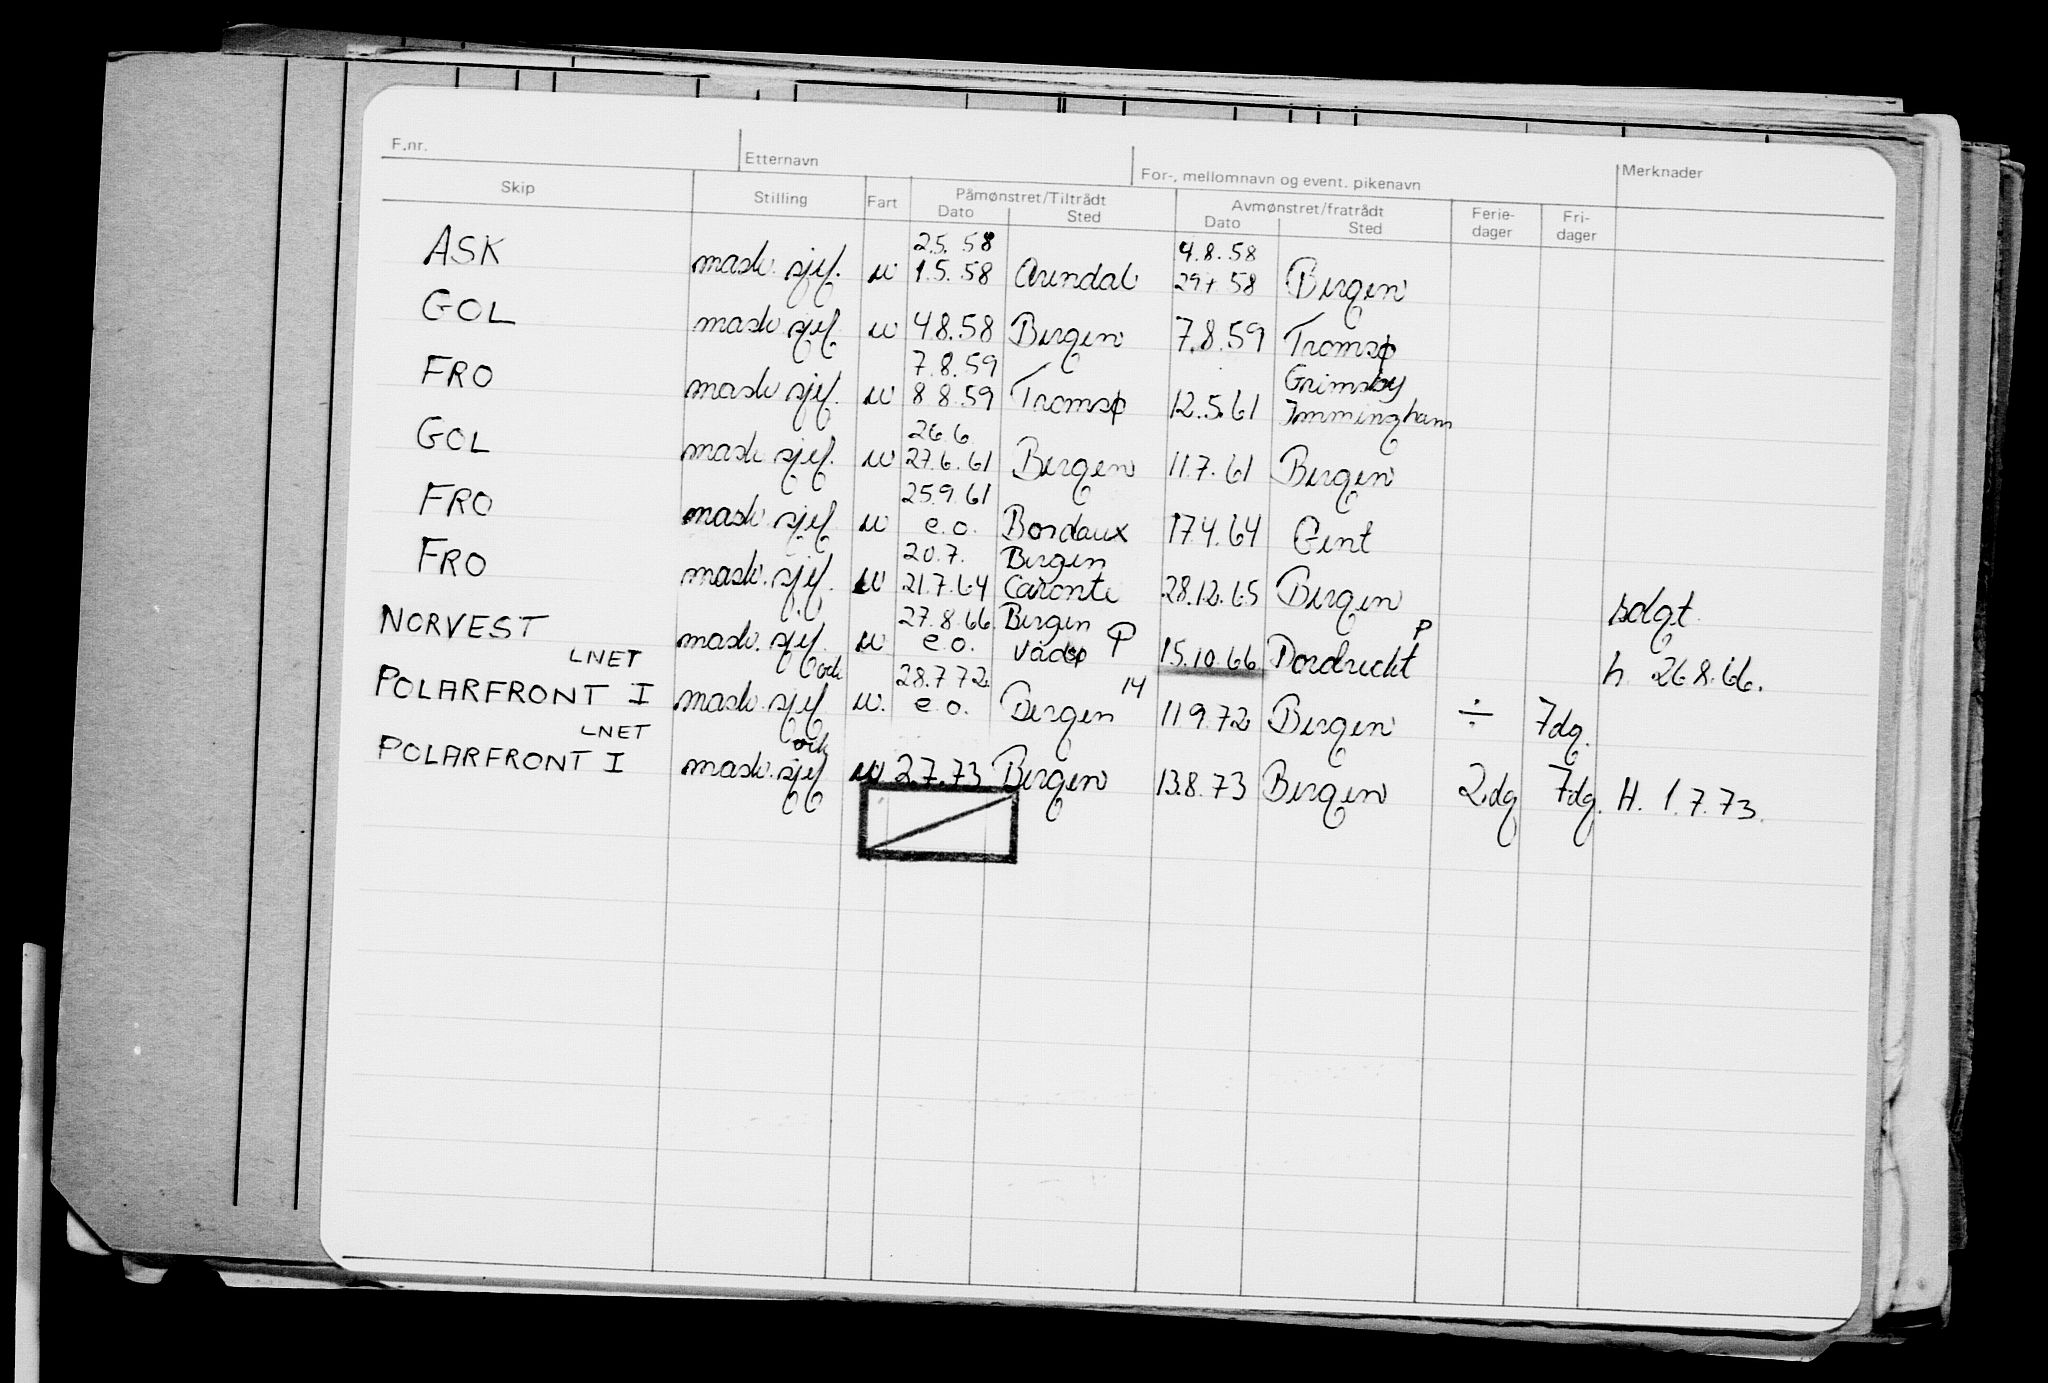 F.nr. Etternavn For-, mellomnavn og event. pikenavn Merknader
Skip Stilling Fart Påmønstret/Tiltrådt Avmønstret/fratrådt Ferie-dager Fri-dager
Dato Sted Dato Sted
25. 58 4.8.58
ASK mask. sjef. u 1.5.58 Arendal 29 7 58 Bergen
GOL mask sjef u 4 8.58 Bergen 7.8.59 Tromsø
7.8.59 Grimsby
FRO mask sjef. u 8 8.59 Tromsø 12.5.61 Immingham
26.6
GOL mask sjef. u 27.6.61 Bergen 11.7.61 Bergen
25.9.61
FRO mask. sjef u e.o. Bordaux 17.4.64 Gent
20.7. Bergen
FRO mask. sjef. u 21.7.64 Caronte 28.12.65 Bergen sdgt.
27.8.66. Bergen P
NORVEST mask. sjef. u e.o. Vadsø P 15.10.66 Dordrecht h. 26 8.66.
LNET 28.7 72. 14
POLARFRONT I mask. sjef u. e.o. Bergen 11 9.72 Bergen ÷ 7dg.
LNET
POLARFRONT I mask. sjef u 2.7.73 Bergen 13.8.73 Bergen 2.dg 7dg. H. 1.7.73.